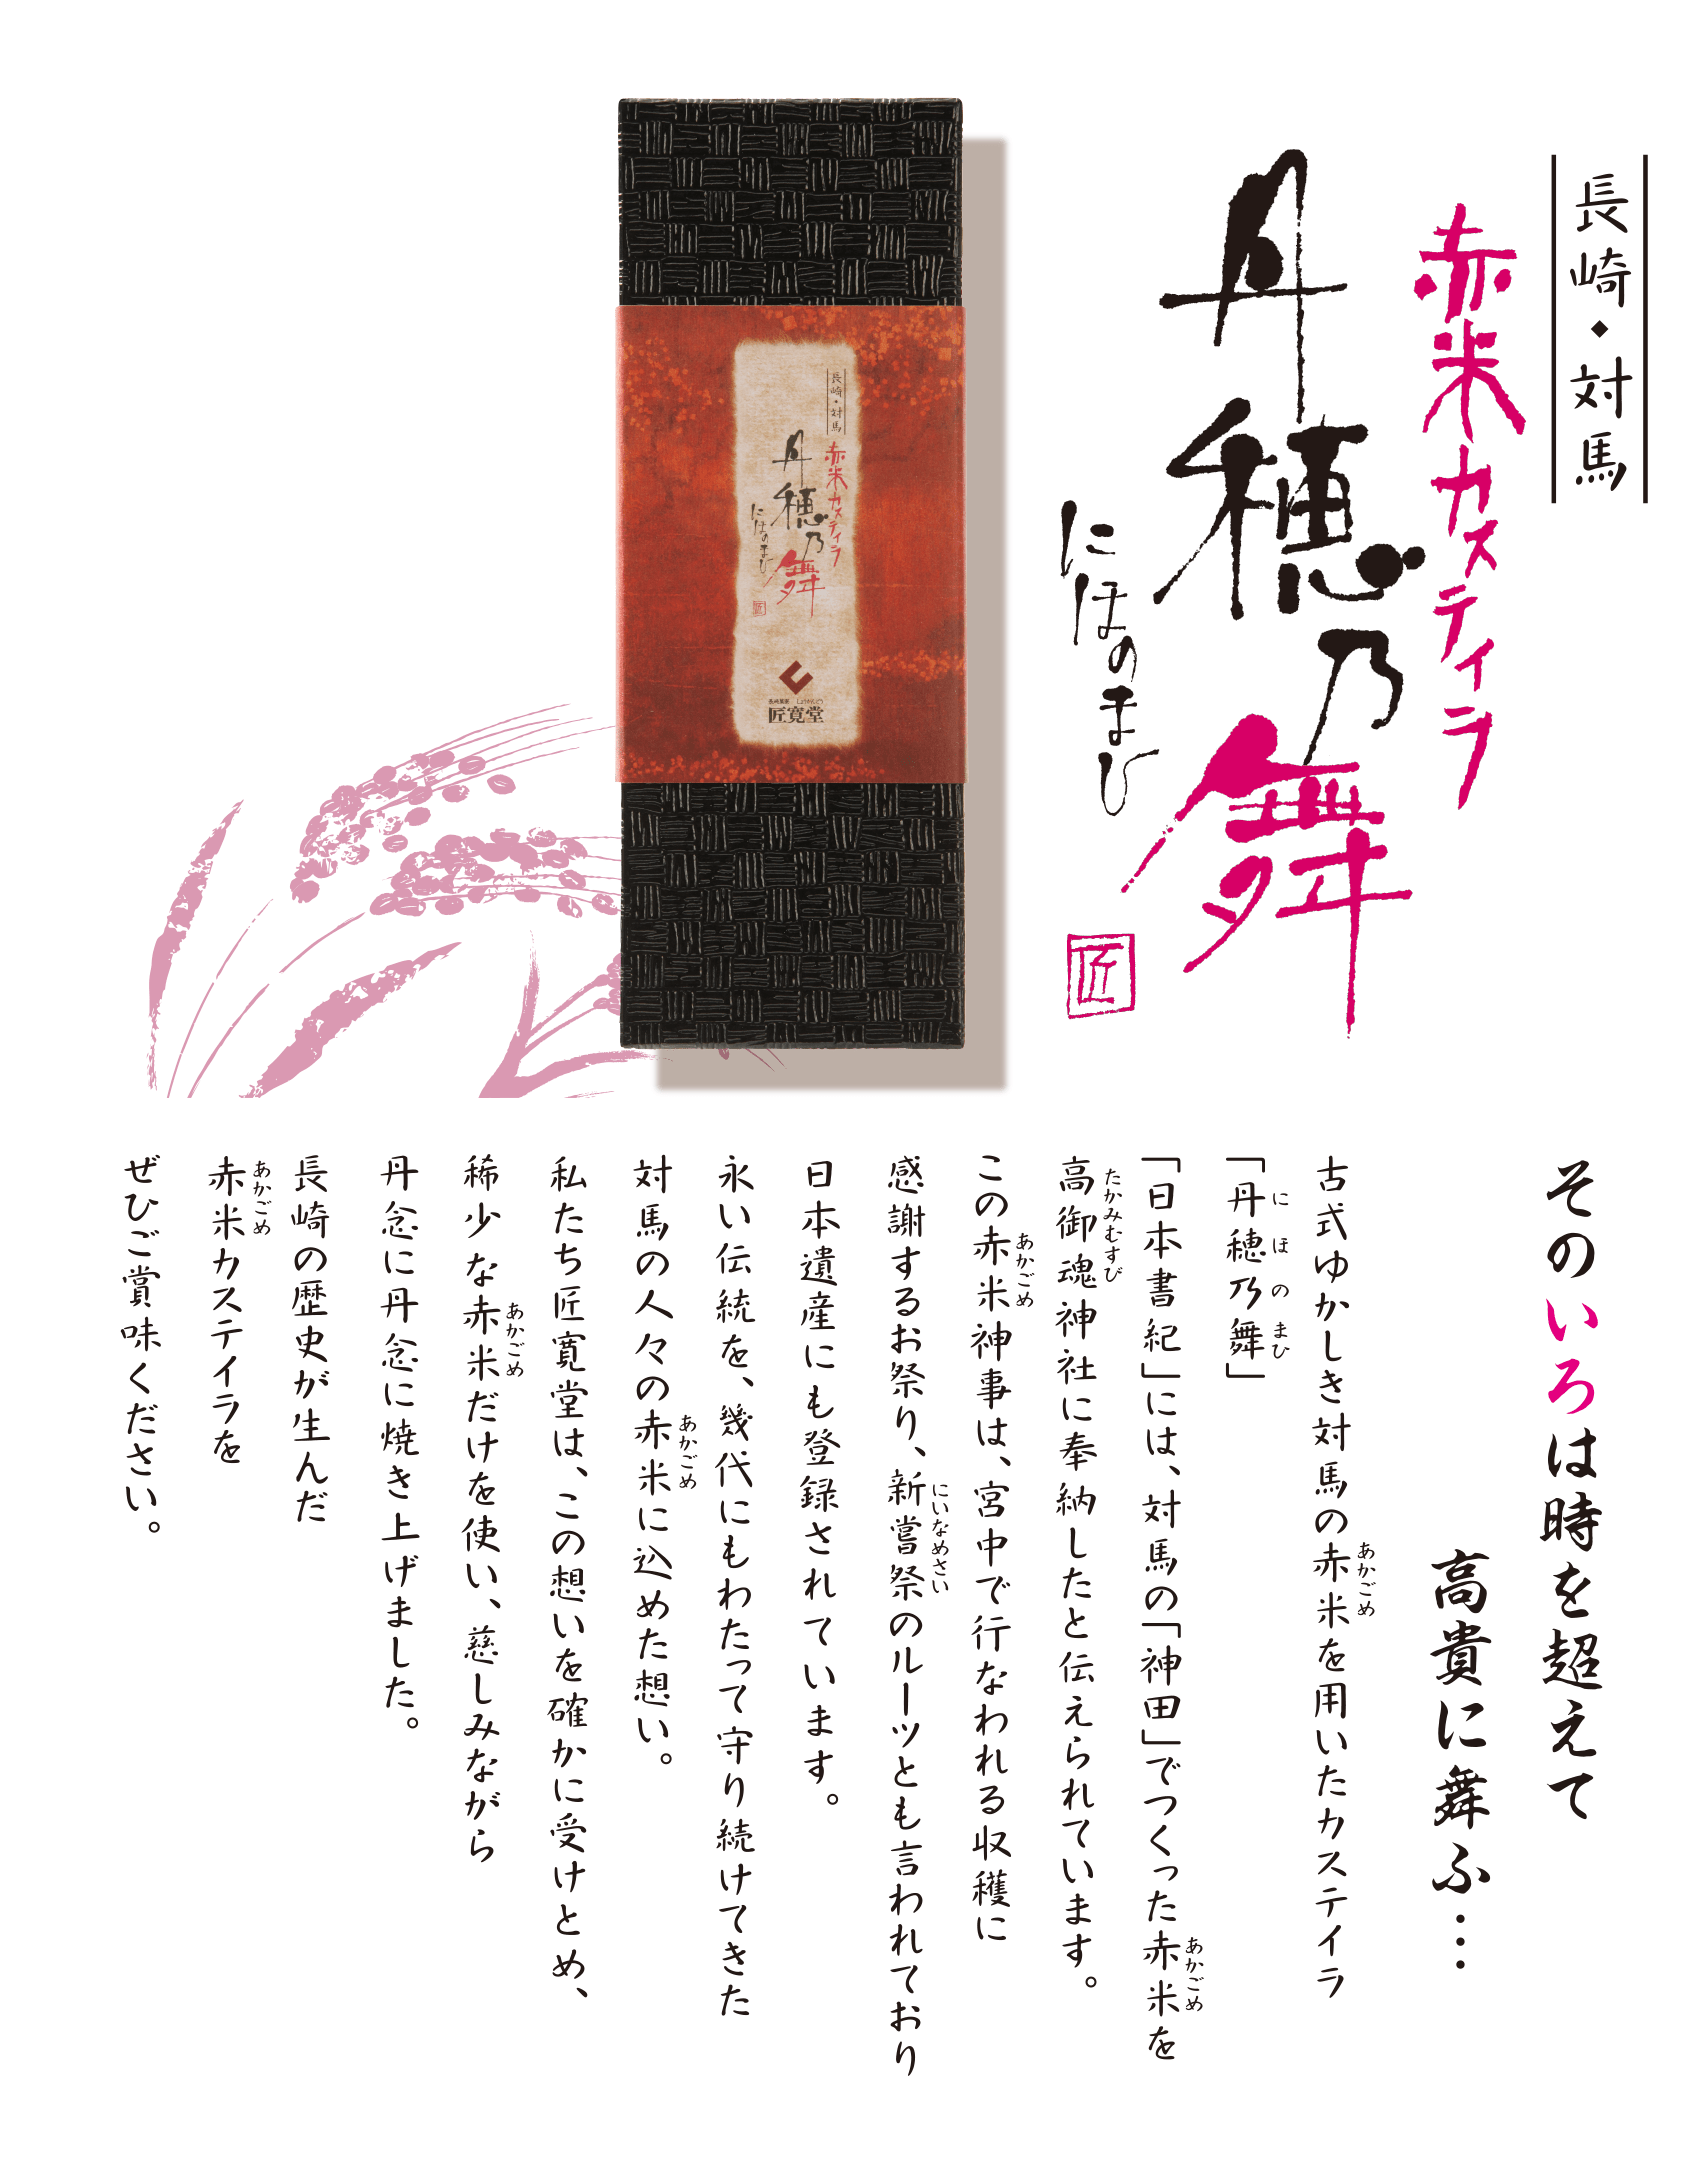 長崎・対馬
赤米カスティラ
丹穂乃舞
にほのまひ
匠
長崎・対馬
赤米カスティラ
丹穂乃舞
にほのまひ
匠
匠寛堂
そのいろは時を超えて
高貴に舞ふ…
古式ゆかしき対馬の赤米を用いたカステイラ
あかごめ
「丹穂乃舞」
にほのまひ
「日本書紀」には、対馬の「神田」でつくった赤米を
あかごめ
高御魂神社に奉納したと伝えられています。
たかみむすび
この赤米神事は、宮中で行なわれる収穫に
あかごめ
感謝するお祭り、新嘗祭のルーツとも言われており
にいなめさい
日本遺産にも登録されています。
永い伝統を、幾代にもわたって守り続けてきた
対馬の人々の赤米に込めた想い。
あかごめ
私たち匠寛堂は、この想いを確かに受けとめ、
稀少な赤米だけを使い、慈しみながら
あかごめ
丹念に丹念に焼き上げました。
長崎の歴史が生んだ
赤米カステイラを
あかごめ
ぜひご賞味ください。